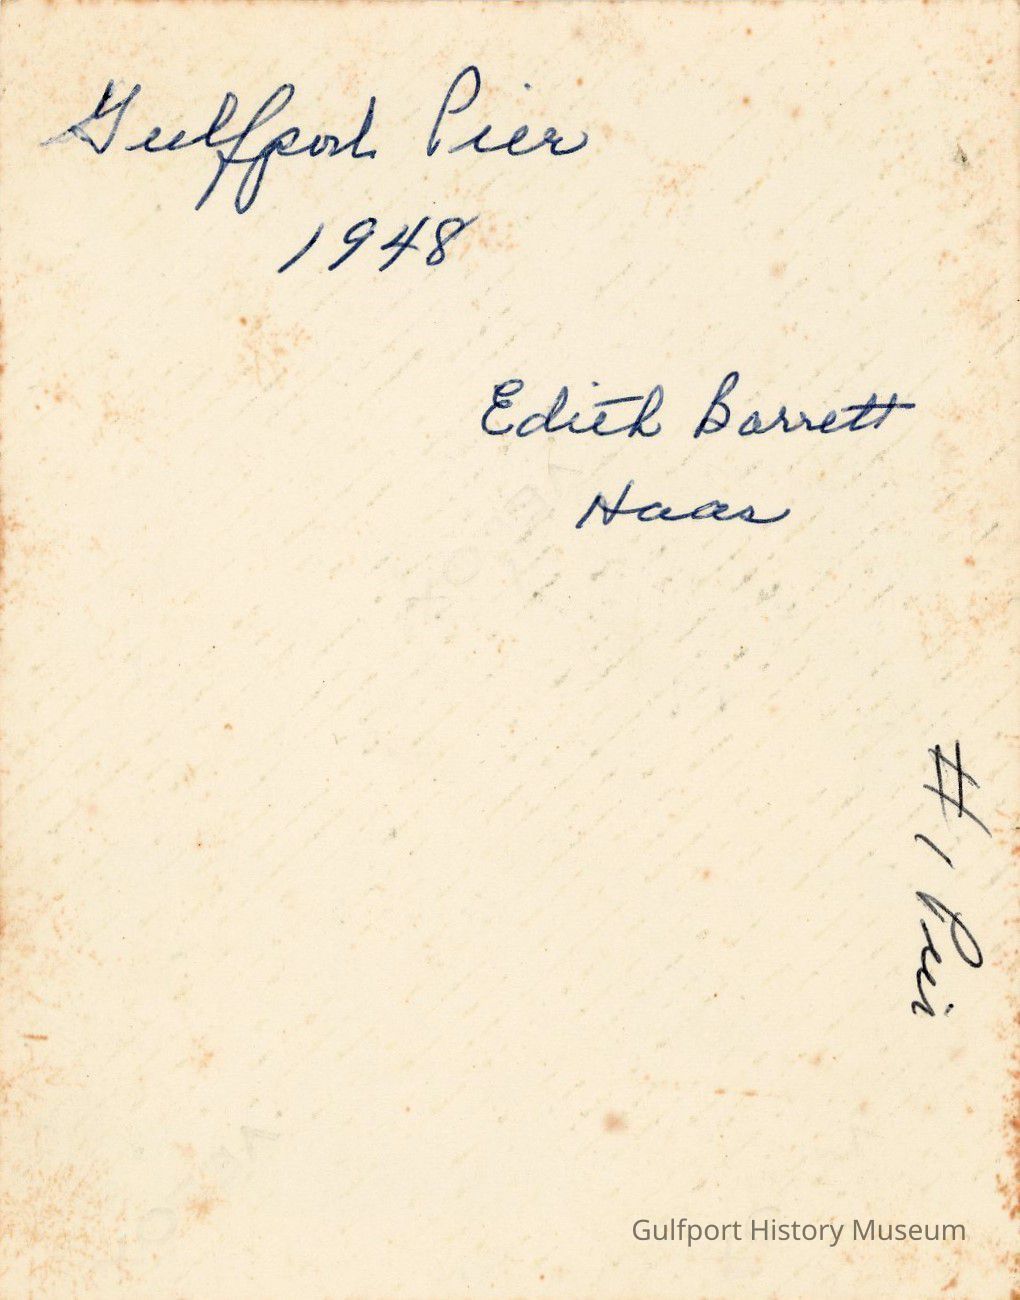 Gulfport Pier
1948
Edith Barrett
Haas
#1 Pier
Gulfport History Museum